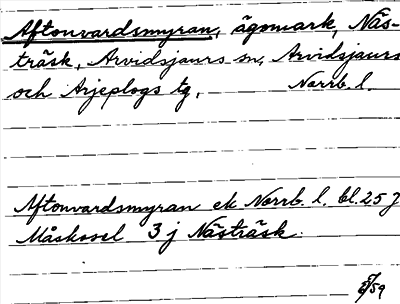 Aftonvardsmyran, ägomark, Näs-
träsk, Arvidsjaurs sn, Arvidsjaurs
och Arjeplogs tg, Norrb. l.
Aftonvardsmyran ek Norrb. l. bl. 25 J
Måskosel 3 j Nästräsk.